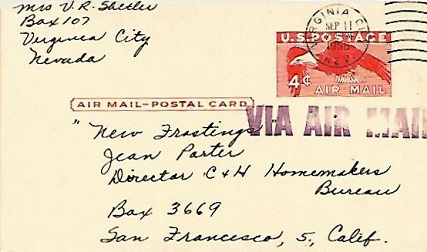 Mrs V. R. Shetler
Box 107
Virginia City
Nevada
VIRGINIA CITY
SEP 11
1956
NEV.
U.S. POSTAGE
4¢
AIR MAIL
AIR MAIL-POSTAL CARD
VIA AIR MAIL
"New Frostings
Jean Porter
Director C & H Homemakers
Bureau
Box 3669
San Francisco, 5, Calif.